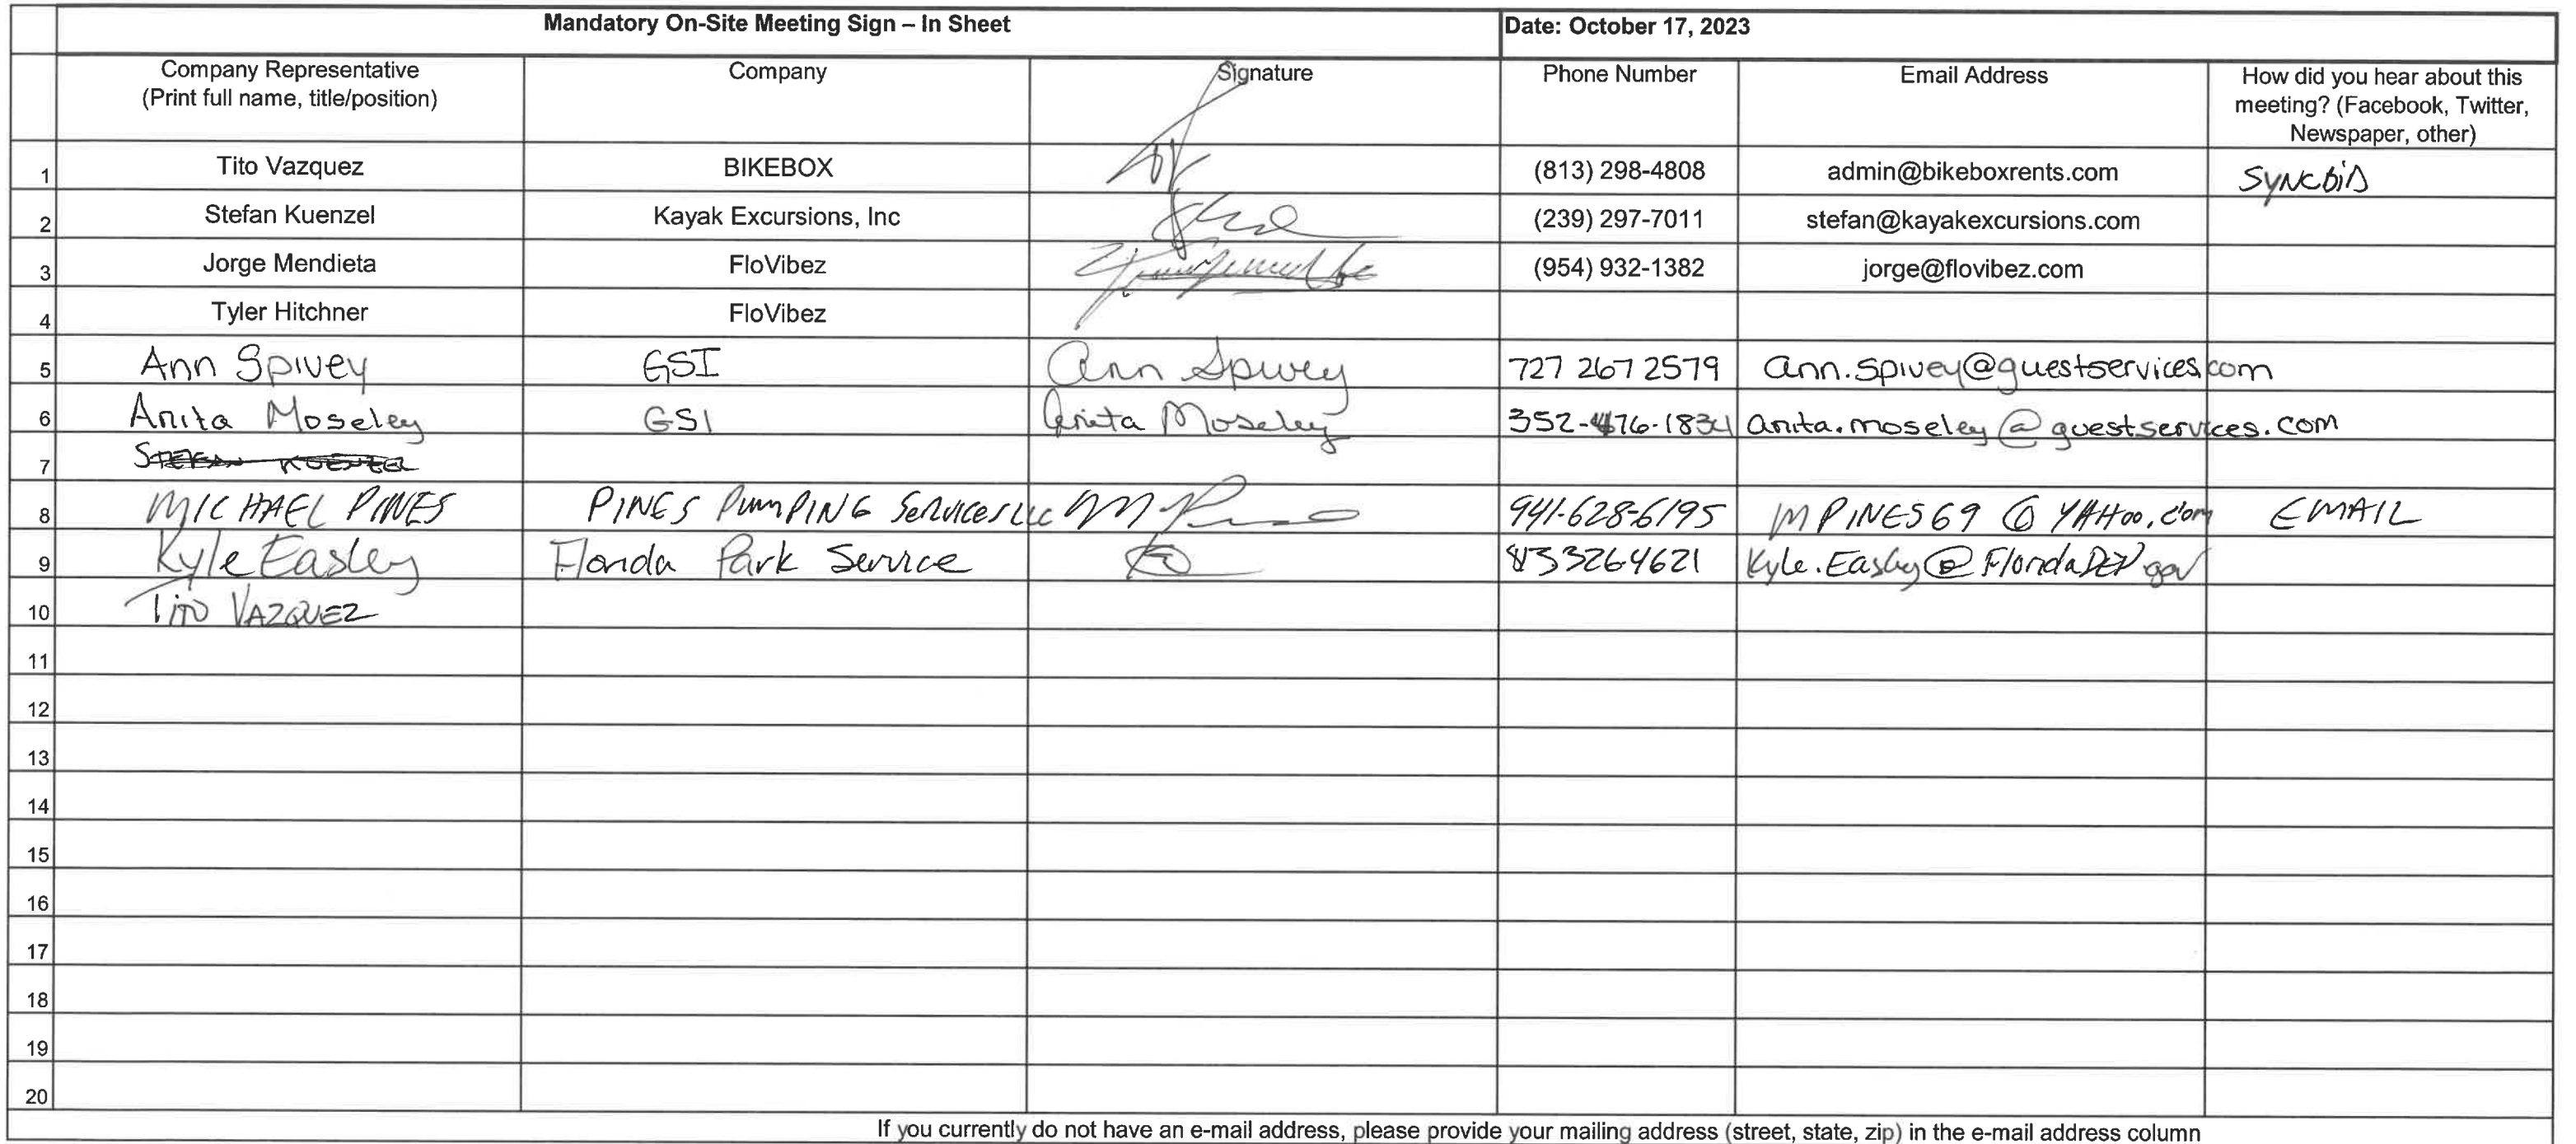 Mandatory On-Site Meeting Sign – In Sheet Date: October 17, 2023
Company Representative
(Print full name, title/position)
Company
Signature
Phone Number
Email Address
How did you hear about this
meeting? (Facebook, Twitter,
Newspaper, other)
1 Tito Vazquez BIKEBOX (813) 298-4808 admin@bikeboxrents.com SYNCbiD
2 Stefan Kuenzel Kayak Excursions, Inc (239) 297-7011 stefan@kayakexcursions.com
3 Jorge Mendieta FloVibez (954) 932-1382 jorge@flovibez.com
4 Tyler Hitchner FloVibez
5 Ann Spivey GSI Ann Spivey 727 267 2579 ann.spivey@guestservices.com
6 Anita Moseley GSI Anita Moseley 352-476-1834 anita.moseley@guestservices.com
7 STEFAN KUENZEL
8 MICHAEL PINES PINES PumPING Services LLC 941-628-6195 MPINES69@YAHoo.com EMAIL
9 Kyle Easley Florida Park Service 8133264621 Kyle.Easley@FloridaDEP.gov
10 Tito VAZQUEZ
11
12
13
14
15
16
17
18
19
20
If you currently do not have an e-mail address, please provide your mailing address (street, state, zip) in the e-mail address column